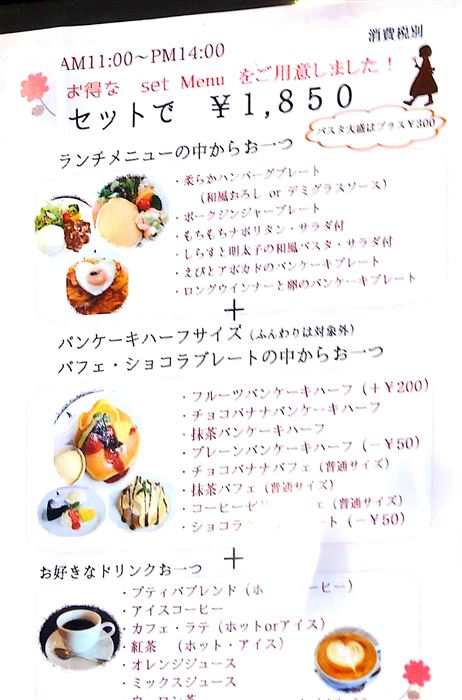 消費税別
AM11:00〜PM14:00
お得な set Menu をご用意しました！
セットで ￥1,850
パスタ大盛はプラス￥300
ランチメニューの中からお一つ
・柔らかハンバーグプレート
（和風おろし or デミグラスソース）
・ポークジンジャープレート
・もちもちナポリタン・サラダ付
・しらすと明太子の和風パスタ・サラダ付
・えびとアボカドのパンケーキプレート
・ロングウインナーと卵のパンケーキプレート
＋
パンケーキハーフサイズ（ふんわりは対象外）
パフェ・ショコラプレートの中からお一つ
・フルーツパンケーキハーフ（＋￥200）
・チョコバナナパンケーキハーフ
・抹茶パンケーキハーフ
・プレーンパンケーキハーフ（－￥50）
・チョコバナナパフェ（普通サイズ）
・抹茶パフェ（普通サイズ）
・コーヒーゼ ェ（普通サイズ）
・ショコラ ート（－￥50）
＋
お好きなドリンクお一つ
・プティパブレンド（ホ ーヒー）
・アイスコーヒー
・カフェ・ラテ（ホットorアイス）
・紅茶 （ホット・アイス）
・オレンジジュース
・ミックスジュース